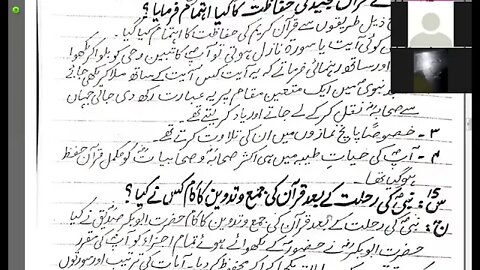 قرآن مجید کی حفاظت کا کیا اہتمام فرمایا؟
ذیل طریقوں سے قرآن کریم کی حفاظت کا اہتمام کیا گیا
کوئی آیت یا سورۃ نازل ہوتی تو آپ کاتبین وحی کو بلا کر لکھوا
اور ساتھ رہنمائی فرماتے کہ یہ آیت کس آیت کے ساتھ ملا کر لکھی جائے
نبویؐ میں ایک متعین مقام پر یہ عبارت رکھ دی جاتی جہاں
سے صحابہؓ نقل کر کے لے جاتے اور یاد کر لیتے تھے
۳۔ خصوصاً پانچ نمازوں میں ان کی تلاوت کرتے تھے۔
۴۔ آپؐ کی حیات طیبہ میں ہی اکثر صحابہؓ و صحابیاتؓ کو مکمل قرآن حفظ
ہو گیا تھا۔
س15: نبیؐ کی رحلت کے بعد قرآن کی جمع و تدوین کا کام کس نے کیا؟
ج: نبیؐ کی رحلت کے بعد قرآن کی جمع و تدوین کا کام حضرت ابوبکر صدیقؓ نے کیا
حضرت ابوبکرؓ نے حضورؐ کے لکھوائے ہوئے تمام اجزاء کو آپؐ کی مقرر
کر محفوظ کر دیا۔ آیات کی ترتیب اور سورتوں